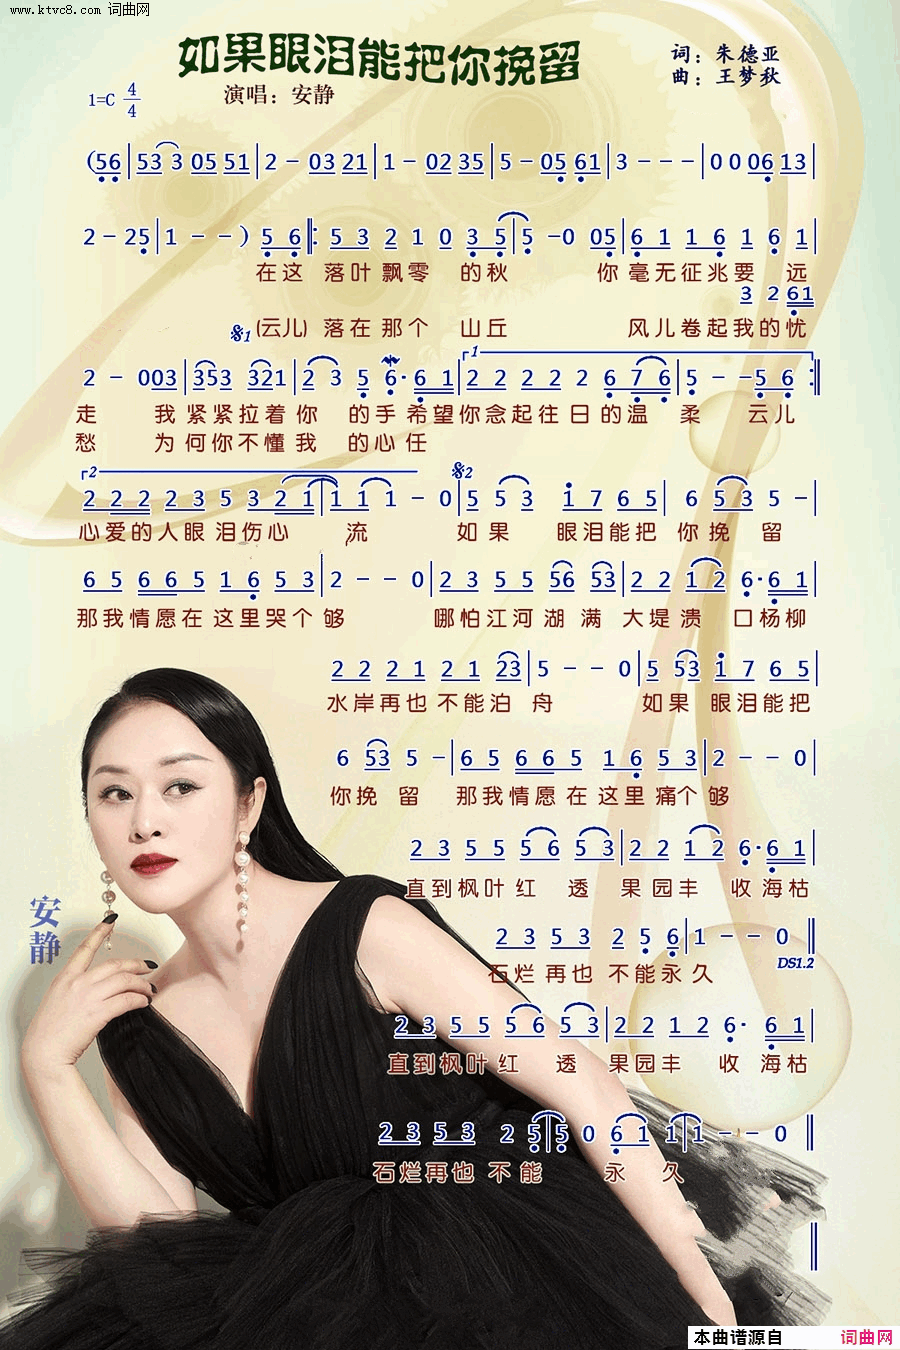 www.ktvc8.com 词曲网
如果眼泪能把你挽留
词：朱德亚
曲：王梦秋
演唱：安静
1=C 4/4
(56|53 3 05 51|2 - 03 21|1 - 02 35|5 - 05 61|3 - - -|0 0 06 13|
2 - 25|1 - - ) 5 6‖: 5 3 2 1 0 3 5|5 -0 05|6 1 1 6 1 6 1|
在这 落叶飘零 的秋 你毫无征兆要 远
3 2 61
𝄋1 (云儿) 落在那个 山丘 风儿卷起我的忧
2 - 003|353 321|2 3 5 6· 61|1 2 2 2 2 2 6 7 6|5 - - 5 6 :‖
走 我紧紧拉着你 的手希望你念起往日的温 柔 云儿
愁 为何你不懂我 的心任
2 2 2 2 2 3 5 3 2 1|1 1 1 - 0|𝄋2 5 5 3 1 7 6 5|6 53 5 -|
心爱的人眼泪伤心 流 如果 眼泪能把 你挽 留
6 5 66 5 1 6 5 3|2 - - 0|2 3 5 5 56 53|2 2 1 2 6· 61|
那我情愿在这里哭个够 哪怕江河湖满 大堤溃 口杨柳
2 2 2 1 2 1 23|5 - - 0|5 53 1 7 6 5|
水岸再也不能泊 舟 如果 眼泪能把
6 53 5 -|6 5 66 5 1 6 5 3|2 - - 0|
你挽 留 那我情愿在这里痛个够
2 3 5 5 5 6 5 3|2 2 1 2 6· 6 1|
直到枫叶红 透 果园丰 收海枯
安静
2 3 5 3 2 5 6|1 - - 0‖
石烂再也不能永久
DS1.2
2 3 5 5 5 6 5 3|2 2 1 2 6· 6 1|
直到枫叶红 透 果园丰 收海枯
2 3 5 3 2 5|5 0 6 1 1|1 - - 0‖
石烂再也不能 永 久
本曲谱源自 词曲网